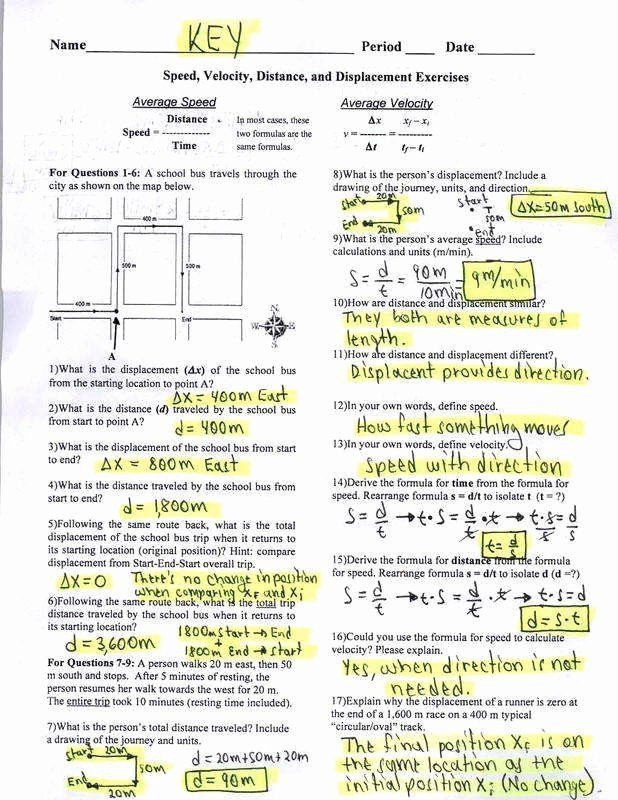 KEY
Name Period Date
Speed, Velocity, Distance, and Displacement Exercises
Average Speed
Distance
Speed = -------------
Time
In most cases, these
two formulas are the
same formulas.
Average Velocity
Δx xf – xi
v = ------- = ---------
Δt tf – ti
For Questions 1-6: A school bus travels through the
city as shown on the map below.
400 m
500 m
500 m
400 m
Start
End
N
W
E
S
A
1)What is the displacement (Δx) of the school bus
from the starting location to point A?
ΔX = 400m East
2)What is the distance (d) traveled by the school bus
from start to point A?
d = 400m
3)What is the displacement of the school bus from start
to end?
ΔX = 800m East
4)What is the distance traveled by the school bus from
start to end?
d = 1,800m
5)Following the same route back, what is the total
displacement of the school bus trip when it returns to
its starting location (original position)? Hint: compare
displacement from Start-End-Start overall trip.
ΔX=0 There's no change in position
when comparing XF and Xi
6)Following the same route back, what is the total trip
distance traveled by the school bus when it returns to
its starting location?
d = 3,600m
1800m Start → End
+
1800m End → Start
For Questions 7-9: A person walks 20 m east, then 50
m south and stops. After 5 minutes of resting, the
person resumes her walk towards the west for 20 m.
The entire trip took 10 minutes (resting time included).
7)What is the person's total distance traveled? Include
a drawing of the journey and units.
Start 20m
50m
End
20m
d = 20m+50m+20m
d = 90m
8)What is the person's displacement? Include a
drawing of the journey, units, and direction.
Start 20m
50m
End
20m
start
50m
end
ΔX=50m south
9)What is the person's average speed? Include
calculations and units (m/min).
S = d/t = 90m/10min = 9m/min
10)How are distance and displacement similar?
They both are measures of
length.
11)How are distance and displacement different?
Displacent provides direction.
12)In your own words, define speed.
How fast something moves
13)In your own words, define velocity.
Speed with direction
14)Derive the formula for time from the formula for
speed. Rearrange formula s = d/t to isolate t (t = ?)
S = d/t → t·S = d/t · t → t·s/s = d/s
t = d/s
15)Derive the formula for distance from the formula
for speed. Rearrange formula s = d/t to isolate d (d =?)
S = d/t → t·S = d/t · t → t·s=d
d = s·t
16)Could you use the formula for speed to calculate
velocity? Please explain.
Yes, when direction is not
needed.
17)Explain why the displacement of a runner is zero at
the end of a 1,600 m race on a 400 m typical
"circular/oval" track.
The final position XF is on
the same location as the
initial position Xi (No change).